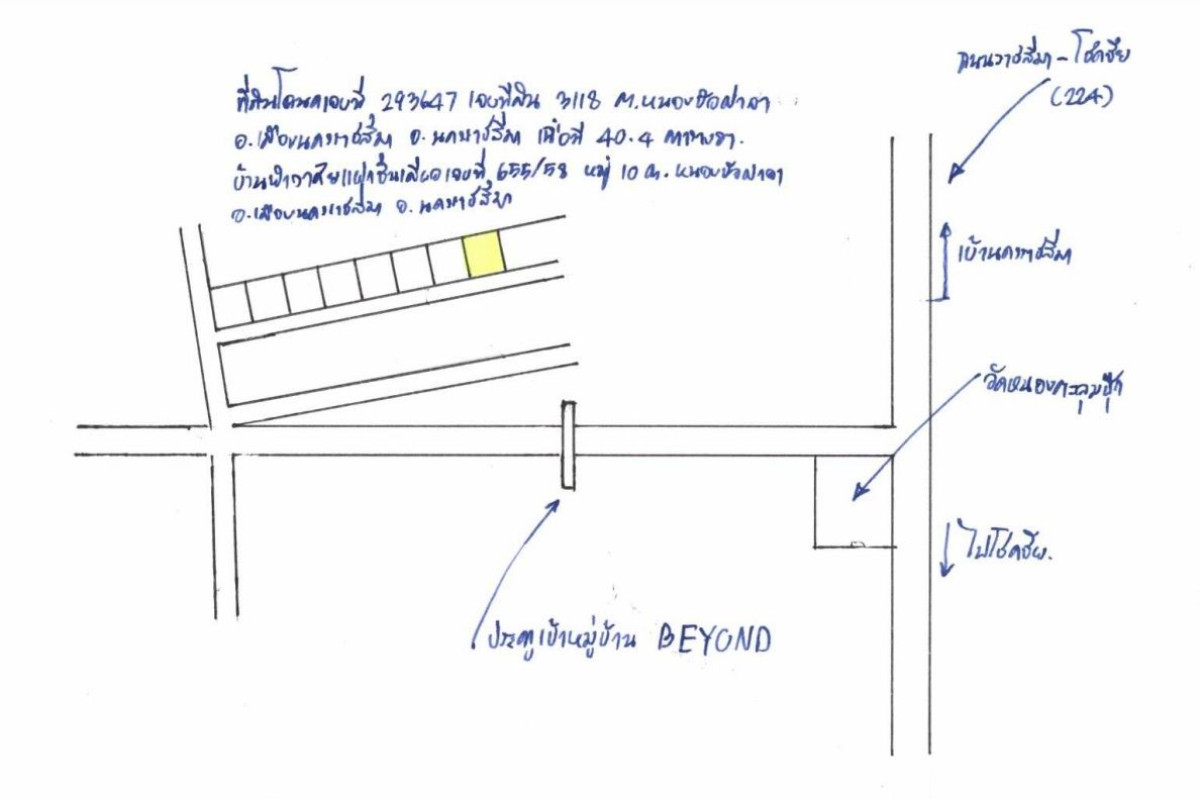 ที่ดินโฉนดเลขที่ 293647 เลขที่ดิน 3118 ต.หนองบัวศาลา
อ.เมืองนครราชสีมา จ.นครราชสีมา เนื้อที่ 40.4 ตารางวา.
บ้านพักอาศัยแฝดชั้นเดียวเลขที่ 655/58 หมู่ 10 ต.หนองบัวศาลา
อ.เมืองนครราชสีมา จ.นครราชสีมา
ถนนราชสีมา-โชคชัย
(224)
เข้านคราชสีมา
วัดหนองตะลุมปุ๊ก
ไปโชคชัย.
ประตูเข้าหมู่บ้าน BEYOND